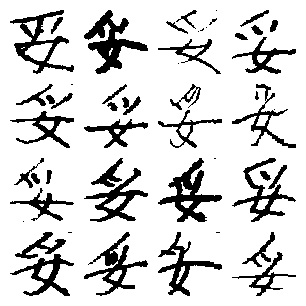 妥妥妥妥
妥妥妥妥
妥妥妥妥
妥妥妥妥